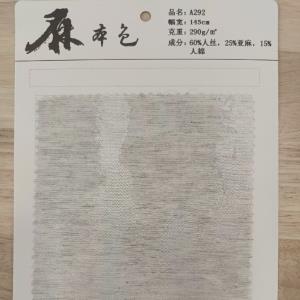 麻本色
品名：A292
幅宽：145cm
克重：290g/㎡
成分：60%人丝，25%亚麻，15%
人棉